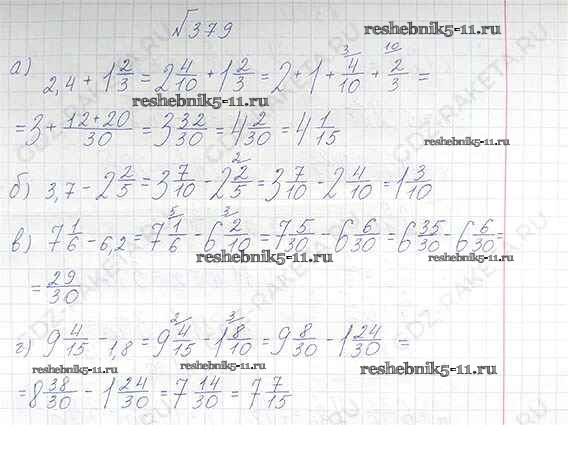 №379
reshebnik5-11.ru
а) 2,4 + 1 2/3 = 2 4/10 + 1 2/3 = 2 + 1 + 4/10 (3 + 2/3 (10 =
reshebnik5-11.ru
= 3 + (12+20)/30 = 3 32/30 = 4 2/30 = 4 1/15
reshebnik5-11.ru
б) 3,7 - 2 2/5 = 3 7/10 - 2 2/5 (2 = 3 7/10 - 2 4/10 = 1 3/10
reshebnik5-11.ru
reshebnik5-11.ru
в) 7 1/6 - 6,2 = 7 1/6 (5 - 6 2/10 (3 = 7 5/30 - 6 6/30 = 6 35/30 - 6 6/30 =
reshebnik5-11.ru
reshebnik5-11.ru
= 29/30
г) 9 4/15 - 1,8 = 9 4/15 (2 - 1 8/10 (3 = 9 8/30 - 1 24/30 =
reshebnik5-11.ru
reshebnik5-11.ru
reshebnik5-11.ru
= 8 38/30 - 1 24/30 = 7 14/30 = 7 7/15
reshebnik5-11.ru
GDZ-RAKETA.RU